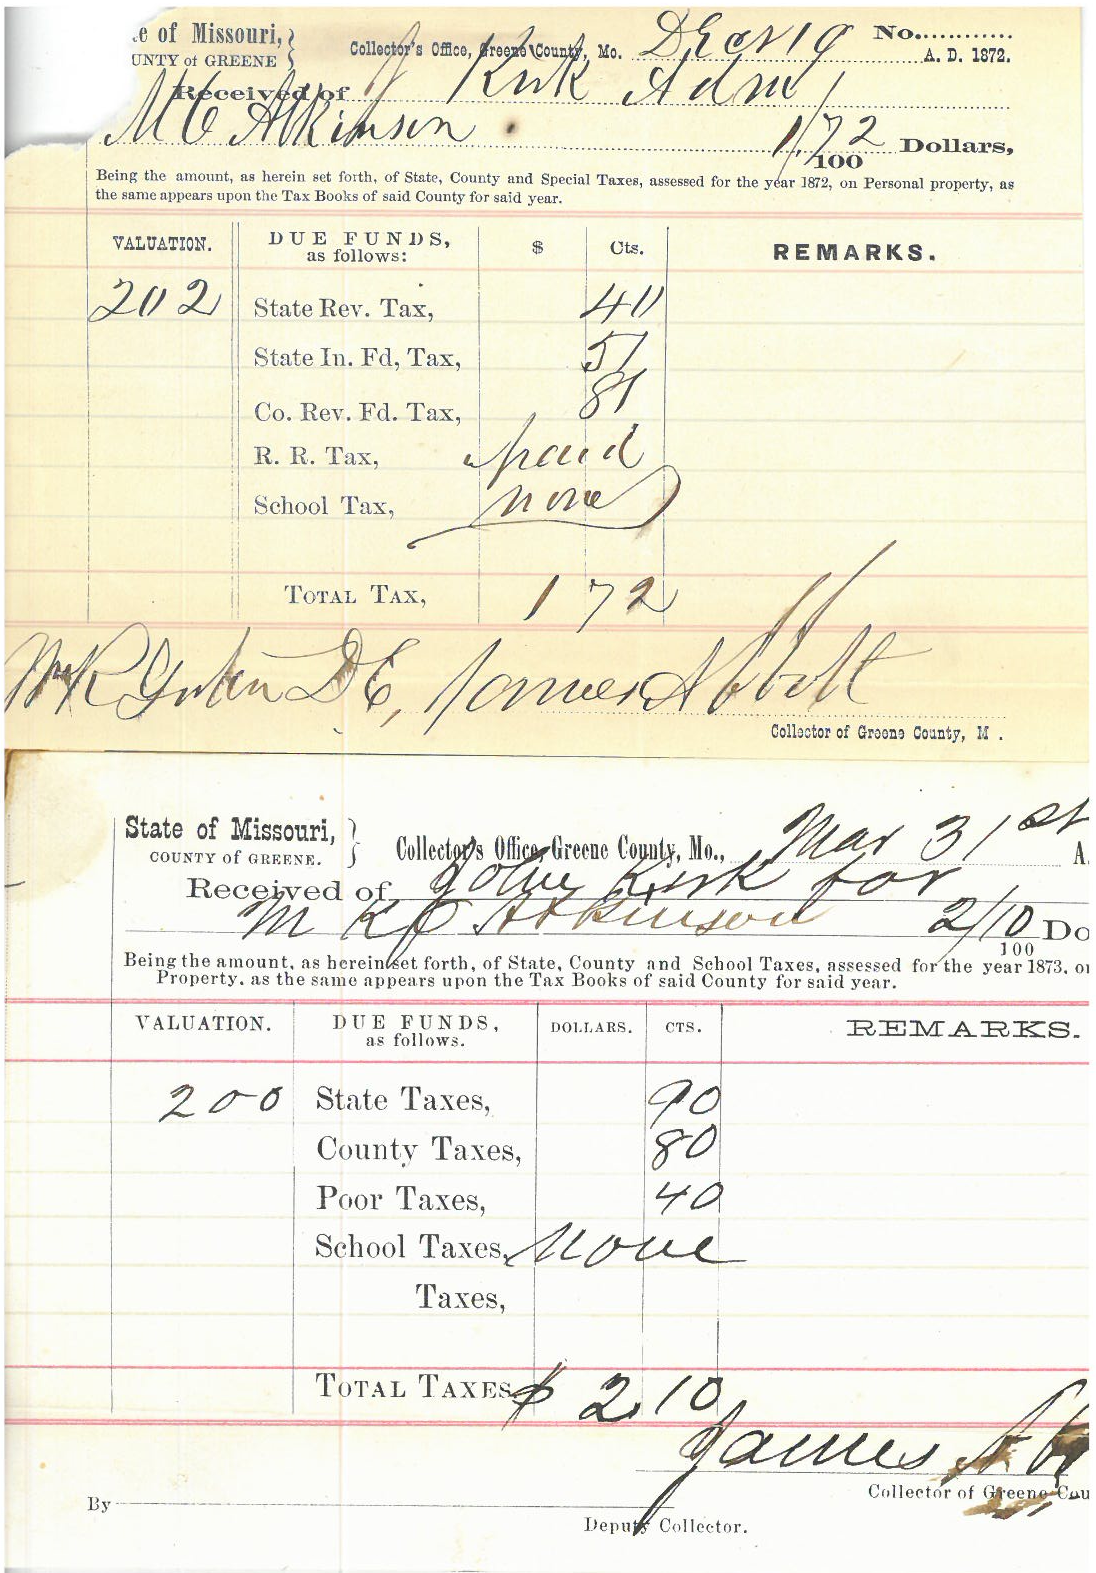 e of Missouri, }
UNTY of GREENE
Collector's Office, Greene County, Mo. Decr 19 No............
A. D. 1872.
Received of J Kirk Adm
M C Atkinson 1 72/100 Dollars,
Being the amount, as herein set forth, of State, County and Special Taxes, assessed for the year 1872, on Personal property, as
the same appears upon the Tax Books of said County for said year.
VALUATION. DUE FUNDS, $ Cts. REMARKS.
as follows:
202 State Rev. Tax, 40
State In. Fd, Tax, 51
Co. Rev. Fd. Tax, 81
R. R. Tax, paid
School Tax, none
TOTAL TAX, 1 72
D C, James Abbott
Collector of Greene County, M .
State of Missouri, }
COUNTY of GREENE.
Collector's Office, Greene County, Mo., Mar 31st A
Received of John Kirk for
M K C Atkinson 2/10 Do
100
Being the amount, as herein set forth, of State, County and School Taxes, assessed for the year 1873, on
Property, as the same appears upon the Tax Books of said County for said year.
VALUATION. DUE FUNDS, DOLLARS. CTS. REMARKS.
as follows.
200 State Taxes, 90
County Taxes, 80
Poor Taxes, 40
School Taxes, None
Taxes,
TOTAL TAXES $ 2.10
James Ab
Collector of Greene Cou
By
Deputy Collector.